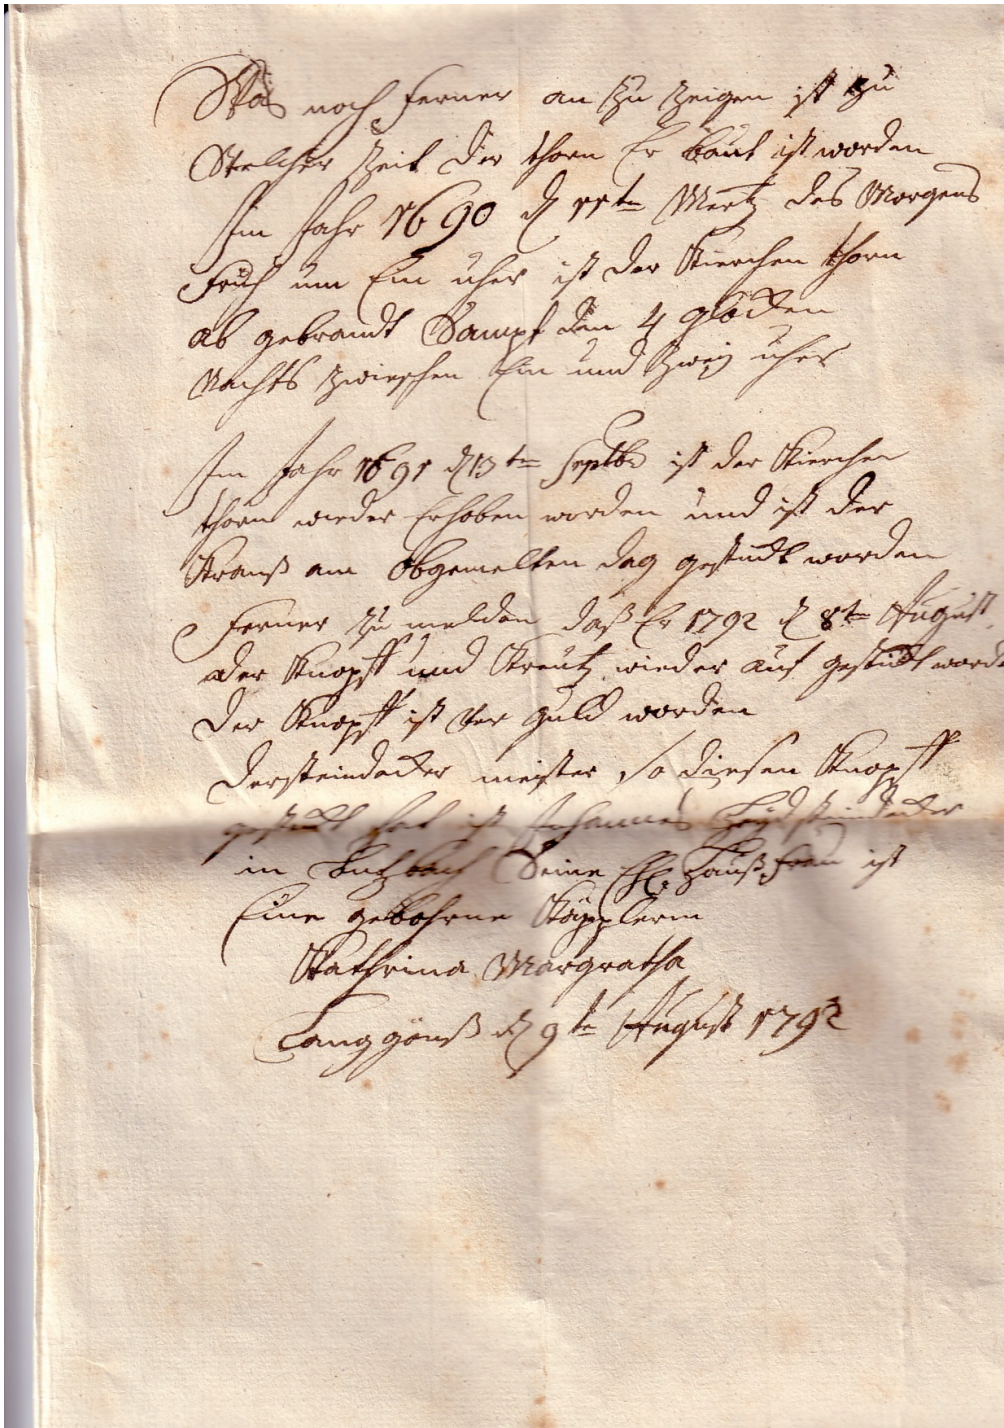 Was noch ferner an zu zeigen ist zu
Welcher Zeit der thorn Er baut ist worden
Im Jahr 1690 d 11tn Mertz des Morgens
früh um Ein uher ist der Kierchen thorn
ab gebrandt Sampt den 4 glocken
Nachts zwieschen Ein und Zweÿ uher
Im Jahr 1691 d 13tn Septbr ist der Kierchen
thorn wieder Erhoben worden und ist der
Krantz am Obgemelten dag gesteckt worden
ferner zu melden daß Er 1792 d 8tn August
der Knopff und Kreutz wieder auf gesteckt worde
der Knopff ist ver guld worden
Dersteindecker meister So diesen Knopff
gesteckt hat ist Johannes steindecker
in Butzbach Seine Ehl. Haußfrau ist
Eine gebohrne Käpplerin
Kathrina Margratha
Langgönß d 9tn August 1792